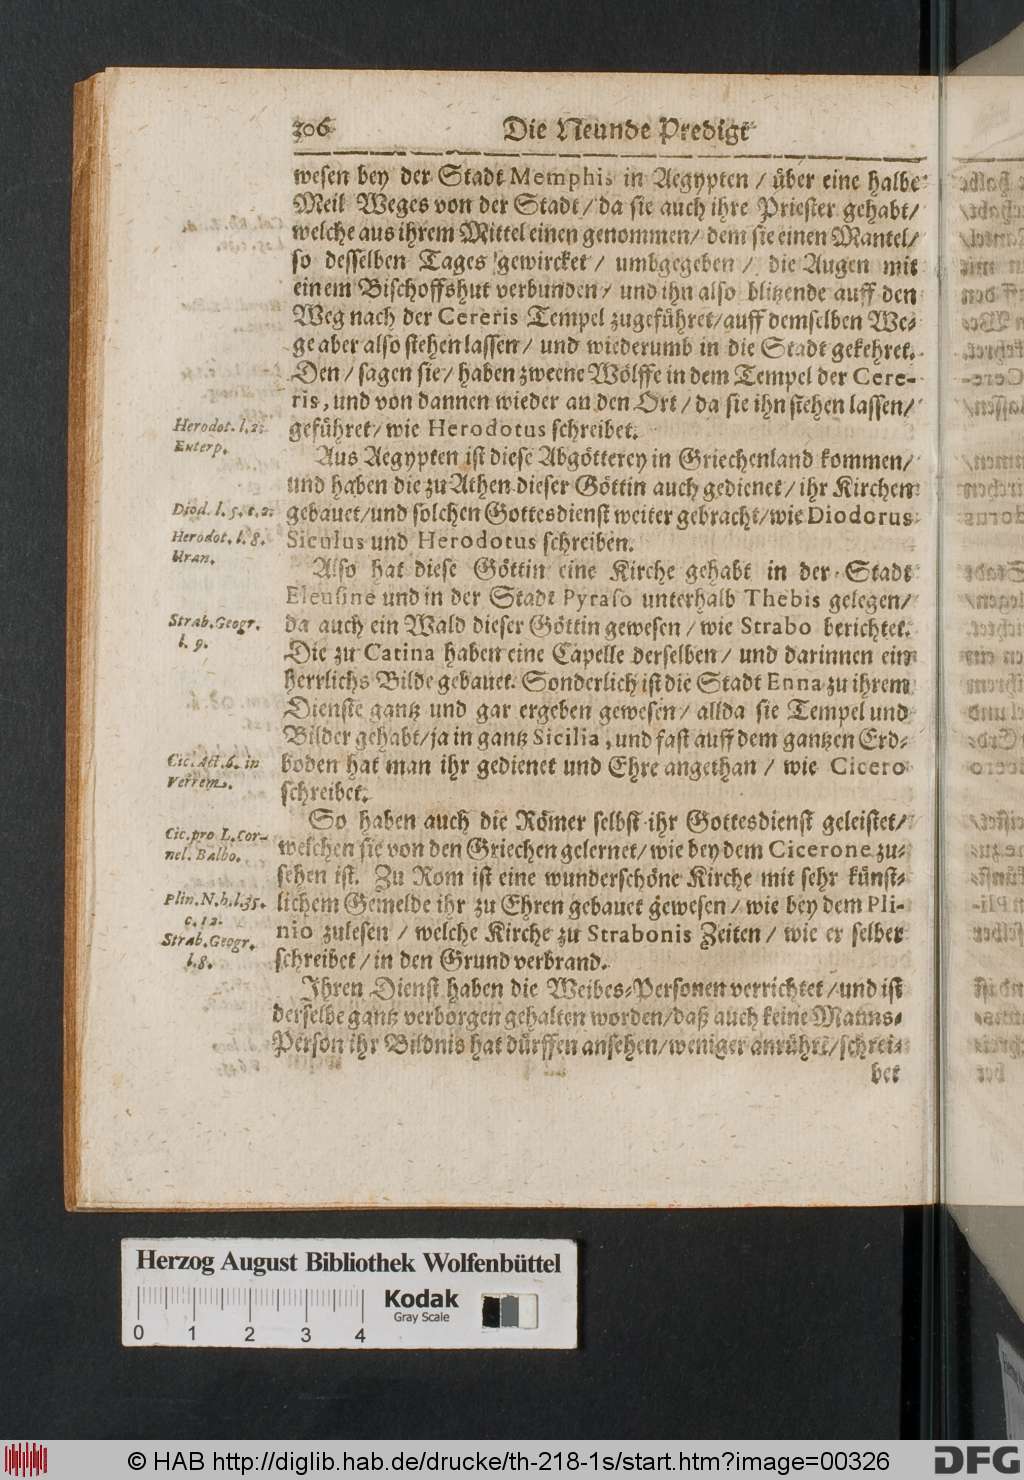 306 Die Neunde Predigt
wesen bey der Stadt Memphis in Aegypten / über eine halbe
Meil Weges von der Stadt / da sie auch ihre Priester gehabt /
welche aus ihrem Mittel einen genommen / dem sie einen Mantel /
so desselben Tages gewircket / umbgegeben / die Augen mit
einem Bischoffshut verbunden / und ihn also blitzende auff den
Weg nach der Cereris Tempel zugeführet / auff demselben We-
ge aber also stehen lassen / und wiederumb in die Stadt gekehret.
Den / sagen sie / haben zweene Wölffe in dem Tempel der Cere-
ris, und von dannen wieder an den Ort / da sie ihn stehen lassen /
Herodot. l. 2.
Euterp.
geführet / wie Herodotus schreibet.
Aus Aegypten ist diese Abgötterey in Griechenland kommen /
und haben die zu Athen dieser Göttin auch gedienet / ihr Kirchen
Diod. l. 5. c. 2.
gebauet / und solchen Gottesdienst weiter gebracht / wie Diodorus
Herodot. l. 8.
Uran.
Siculus und Herodotus schreiben.
Also hat diese Göttin eine Kirche gehabt in der Stadt
Eleusine und in der Stadt Pyraso unterhalb Thebis gelegen /
Strab. Geogr.
l. 9.
da auch ein Wald dieser Göttin gewesen / wie Strabo berichtet.
Die zu Catina haben eine Capelle derselben / und darinnen ein
herrlichs Bilde gebauet. Sonderlich ist die Stadt Enna zu ihrem
Dienste gantz und gar ergeben gewesen / allda sie Tempel und
Bilder gehabt / ja in gantz Sicilia, und fast auff dem gantzen Erd-
Cic. Act. 6. in
Verrem.
boden hat man ihr gedienet und Ehre angethan / wie Cicero
schreibet.
So haben auch die Römer selbst ihr Gottesdienst geleistet /
Cic. pro L. Cor-
nel. Balbo.
welchen sie von den Griechen gelernet / wie bey dem Cicerone zu-
sehen ist. Zu Rom ist eine wunderschöne Kirche mit sehr künst-
Plin. N. h. l. 35.
c. 12.
lichem Gemelde ihr zu Ehren gebauet gewesen / wie bey dem Pli-
nio zulesen / welche Kirche zu Strabonis Zeiten / wie er selber
Strab. Geogr.
l. 8.
schreibet / in den Grund verbrand.
Ihren Dienst haben die Weibes-Personen verrichtet / und ist
derselbe gantz verborgen gehalten worden / daß auch keine Manns-
Person ihr Bildnis hat dürffen ansehen / weniger anrühren / schrei-
bet
Herzog August Bibliothek Wolfenbüttel
0 1 2 3 4
Kodak
Gray Scale
© HAB http://diglib.hab.de/drucke/th-218-1s/start.htm?image=00326
DFG